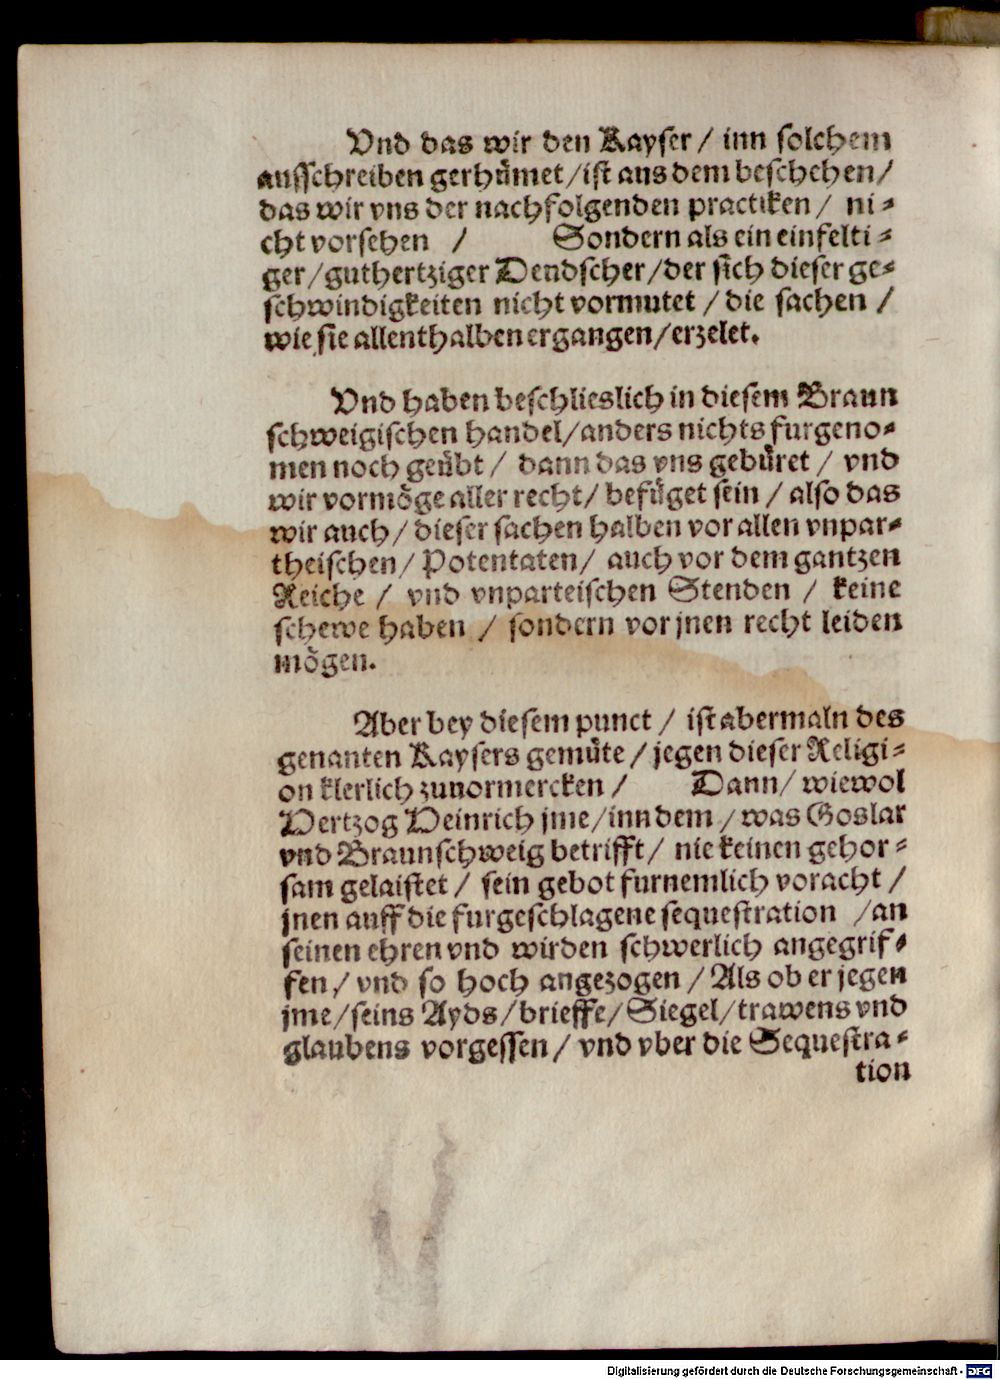 Vnd das wir den Kayser / inn solchem
ausschreiben gerhümet / ist aus dem beschehen /
das wir vns der nachfolgenden practiken / ni=
cht vorsehen / Sondern als ein einfelti=
ger / guthertziger Dendscher / der sich dieser ge=
schwindigkeiten nicht vormutet / die sachen /
wie sie allenthalben ergangen / erzelet.
Vnd haben beschlieslich in diesem Braun
schweigischen handel / anders nichts furgeno=
men noch geübt / dann das vns gebüret / vnd
wir vormöge aller recht / befüget sein / also das
wir auch / dieser sachen halben vor allen vnpar=
theischen / Potentaten / auch vor dem gantzen
Reiche / vnd vnparteischen Stenden / keine
schewe haben / sondern vor jnen recht leiden
mögen.
Aber bey diesem punct / ist abermaln des
genanten Kaysers gemüte / jegen dieser Religi=
on klerlich zuuormercken / Dann / wiewol
Hertzog Heinrich jme / inn dem / was Goslar
vnd Braunschweig betrifft / nie keinen gehor=
sam gelaistet / sein gebot furnemlich voracht /
jnen auff die furgeschlagene sequestration / an
seinen ehren vnd wirden schwerlich angegrif=
fen / vnd so hoch angezogen / Als ob er jegen
jme / seins Ayds / brieffe / Siegel / trawens vnd
glaubens vorgessen / vnd vber die Sequestra=
tion
Digitalisierung gefördert durch die Deutsche Forschungsgemeinschaft - DFG